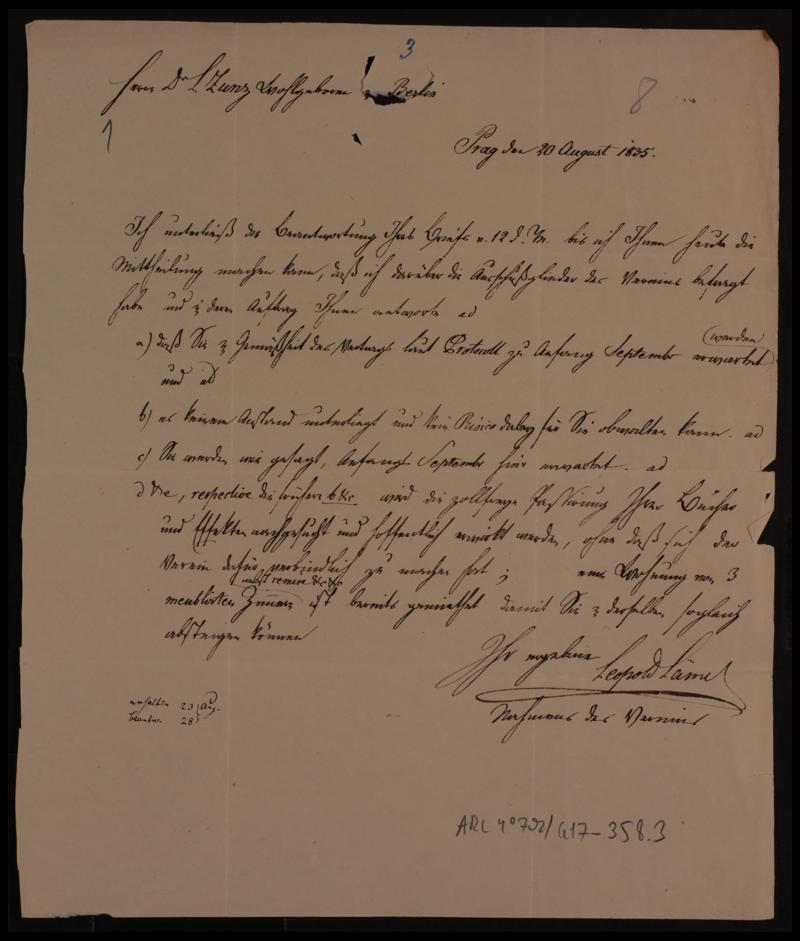 3
Herrn Dr L Zunz Wohlgeboren Berlin
8
1
Prag den 20 August 1835.
Ich unterließ die Beantwortung Ihres Briefs v. 12 d. M. bis ich Ihnen heute die
Mittheilung machen kann, daß ich darüber die Ausschußglieder des Vereins befragt
habe und in deren Auftrag Ihnen antworte ad
a) daß Sie in Gemäßheit des Vertrags laut Protocoll zu Anfang September erwartet
(werden
und ad
b) es keinem Anstand unterliegt und kein Risico dabey für Sie obwalten kann. ad
c) Sie werden wie gesagt, Anfangs September hier erwartet. ad
d &e, respective die frühere b &c wird die zollfreye Passirung Ihrer Bücher
und Effekten nachgesucht und hoffentlich erwirkt werden, ohne daß sich der
Verein dafür verbindlich zu machen hat; eine Wohnung von 3
nebst remise
meublirten Zimmern ist bereits gemiethet damit Sie in derselben sogleich
absteigen können
Ihr ergebene
Leopold Lämel
Nahmens des Vereins
erhalten 23 Aug.
beantw. 28
ARC 4° 792/G17-358.3